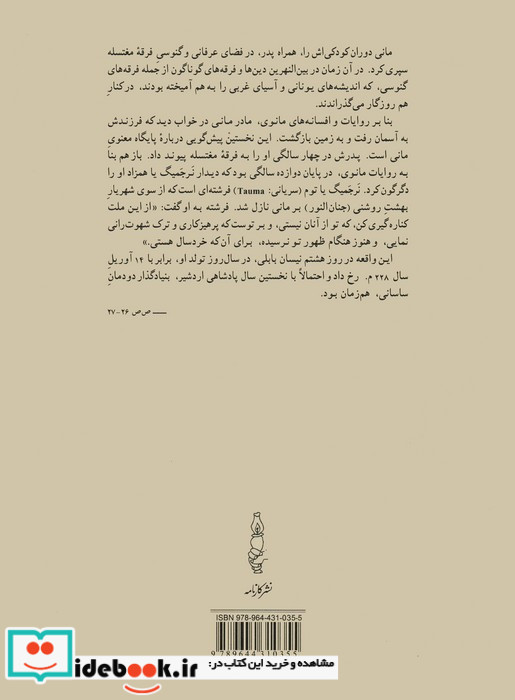 مانی دوران کودکی‌اش را، همراه پدر، در فضای عرفانی و گنوسی فرقهٔ مغتسله
سپری کرد. در آن زمان در بین‌النهرین دین‌ها و فرقه‌های گوناگون از جمله فرقه‌های
گنوسی، که اندیشه‌های یونانی و آسیای غربی را به هم آمیخته بودند، در کنار
هم روزگار می‌گذراندند.
بنا بر روایات و افسانه‌های مانوی، مادر مانی در خواب دید که فرزندش
به آسمان رفت و به زمین بازگشت. این نخستین پیش‌گویی دربارهٔ پایگاه معنوی
مانی است. پدرش در چهار سالگی او را به فرقهٔ مغتسله پیوند داد. باز هم بنا
به روایات مانوی، در پایان دوازده سالگی بود که دیدار نَرجَمیگ یا همزاد او را
دگرگون کرد. نَرجَمیگ یا توم (سریانی: Tauma) فرشته‌ای است که از سوی شهریارِ
بهشتِ روشنی (جنان‌النور) بر مانی نازل شد. فرشته به او گفت: «از این ملت
کناره گیری کن، که تو از آنان نیستی، و بر توست که پرهیزکاری و ترک شهوت‌رانی
نمایی، و هنوز هنگام ظهور تو نرسیده، برای آن‌که خردسال هستی.»
این واقعه در روز هشتم نیسان بابلی، در سال‌روز تولد او، برابر با ۱۴ آوریل
سال ۲۲۸ م. رخ داد و احتمالاً با نخستین سال پادشاهی اردشیر، بنیادگذار دودمان
ساسانی، هم‌زمان بود.
ــــ ص‌ص ۲۶-۲۷
نشر کارنامه
ISBN 978-964-431-035-5
9 789644 310355
idebook.ir
مشاهده و خرید این کتاب در: